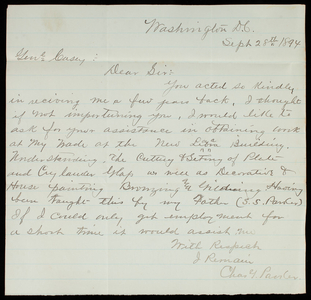 Washington D.C.
Sept 28th 1894
Genl Casey:
Dear Sir:
You acted so kindly
in reciving me a few years back, I thought
if not importuning you, I would like to
ask for your assistance in obtaining work
at My Trade at the New Building.
Understanding The Cutting of Plate
and Glass as well as Decorative &
House painting Bronzing & Having
been taught this by my Father (S.S.
If I Could only get employment for
a short time it would assist me
With Respect
I Remain
Chas